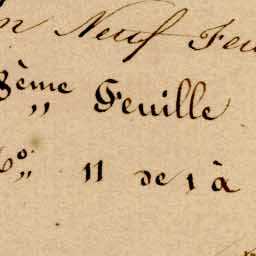 Neuf Feu
3ème Feuille
N°. 11 de 1 à